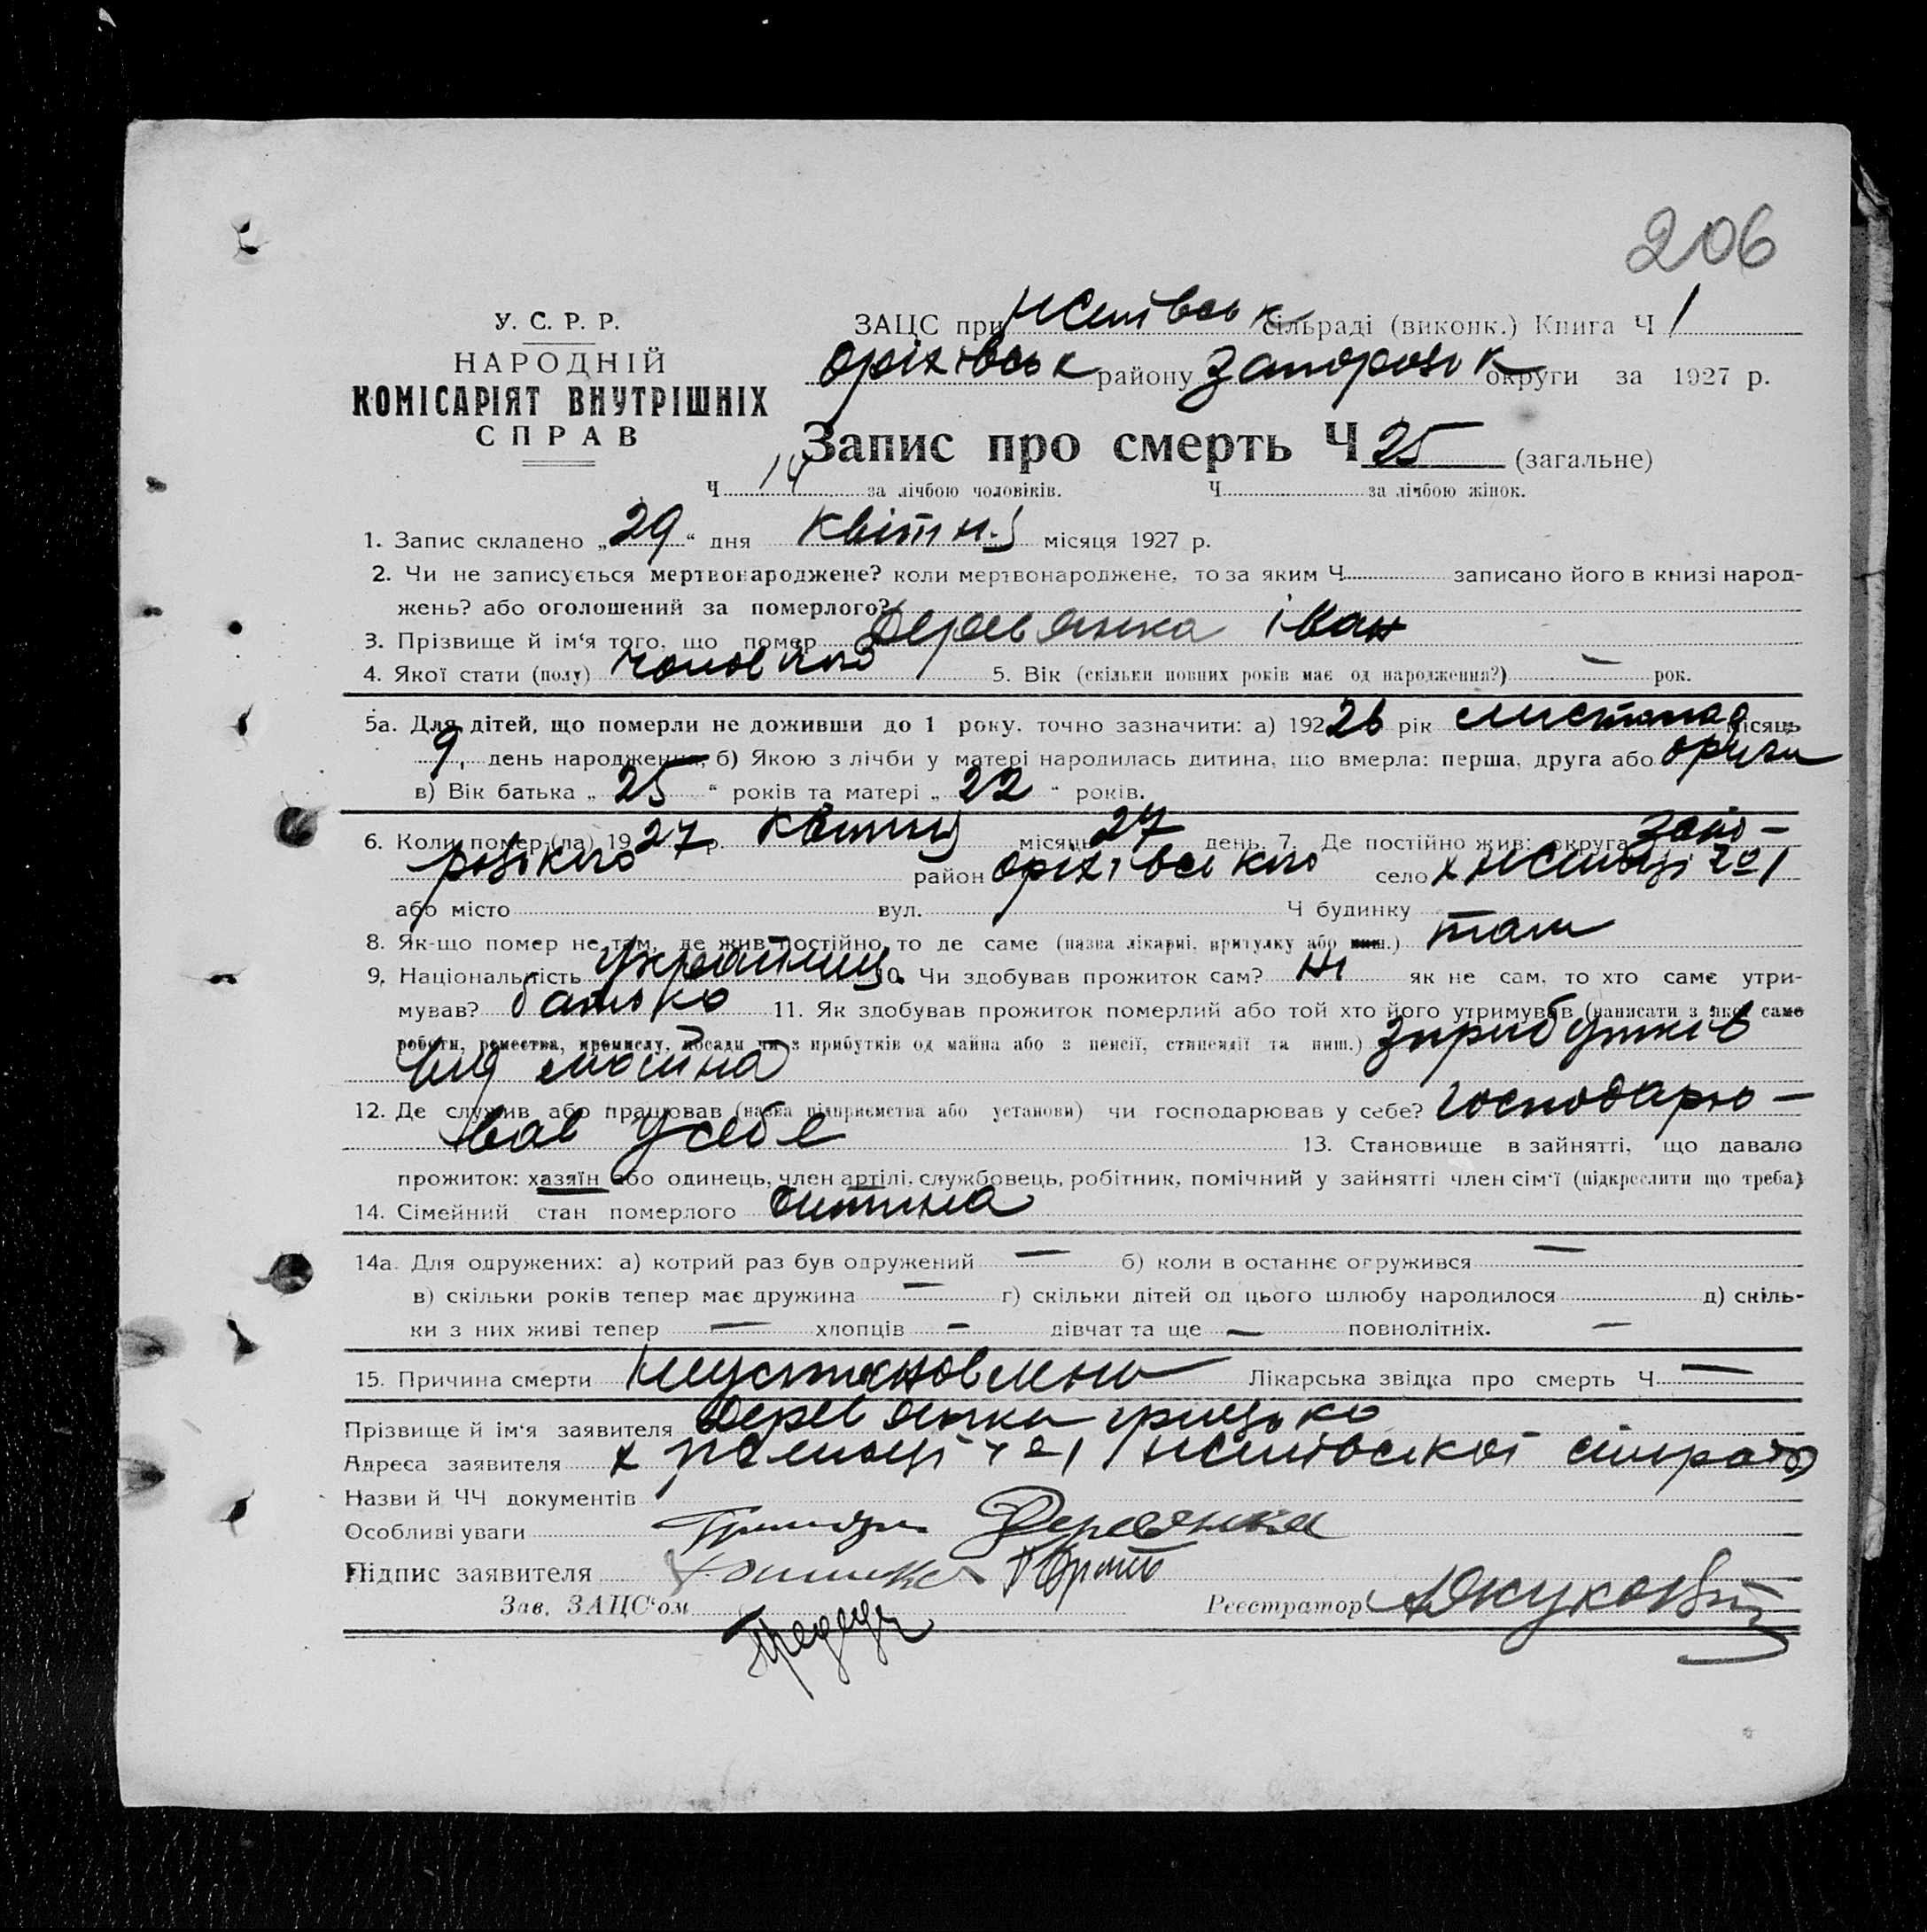 206
У. С. Р. Р.
НАРОДНІЙ
КОМІСАРІЯТ ВНУТРІШНІХ
СПРАВ
ЗАЦС при сільраді (виконк.) Книга Ч 1
Оріхівськ району Запорозьк округи за 1927 р.
Запис про смерть Ч 25 (загальне)
Ч 14 за лічбою чоловіків. Ч за лічбою жінок.
1. Запис складено „29“ дня квітня місяця 1927 р.
2. Чи не записується мертвонароджене? коли мертвонароджене, то за яким Ч записано його в книзі народ-
жень? або оголошений за померлого?
3. Прізвище й ім‘я того, що помер Деревянка Іван
4. Якої стати (полу) чоловічого 5. Вік (скільки повних років має од народження?) — рок.
5а. Для дітей, що померли не доживши до 1 року, точно зазначити: а) 192 26 рік листопад місяць
9, день народження, б) Якою з лічби у матері народилась дитина, що вмерла: перша, друга або друга
в) Вік батька „ 25 “ років та матері „ 22 “ років.
6. Коли помер-(ла) 19 27 р. квітня місяць 27 день. 7. Де постійно жив: округа Запо-
розького район Оріхівського село х
або місто вул. Ч будинку
8. Як-що помер не там, де жив постійно, то де саме (назва лікарні, притулку або инш.) там
9. Національність українец 10. Чи здобував прожиток сам? ні як не сам, то хто саме утри-
мував? батько 11. Як здобував прожиток померлий або той хто його утримував (написати з якої саме
роботи, ремества, промислу, посади чи з прибутків од майна або з пенсії, стипендії та инш.) з прибутків
від майна
12. Де служив або працював (назва підприємства або установи) чи господарював у себе? господарю-
вав у себе 13. Становище в зайнятті, що давало
прожиток: хазяїн або одинець, член артілі, службовець, робітник, помічний у зайнятті член сім‘ї (підкреслити що треба)
14. Сімейний стан померлого дитина
14а. Для одружених: а) котрий раз був одружений — б) коли в останнє огружився —
в) скільки років тепер має дружина — г) скільки дітей од цього шлюбу народилося д) скіль-
ки з них живі тепер — хлопців — дівчат та ще — повнолітніх. —
15. Причина смерти Неустановлено Лікарська звідка про смерть Ч —
Прізвище й ім‘я заявителя Деревянка Грицько
Адреса заявителя х сільради
Назви й ЧЧ документів
Особливі уваги Деревянка
Підпис заявителя
Зав. ЗАЦС‘ом Реєстратор